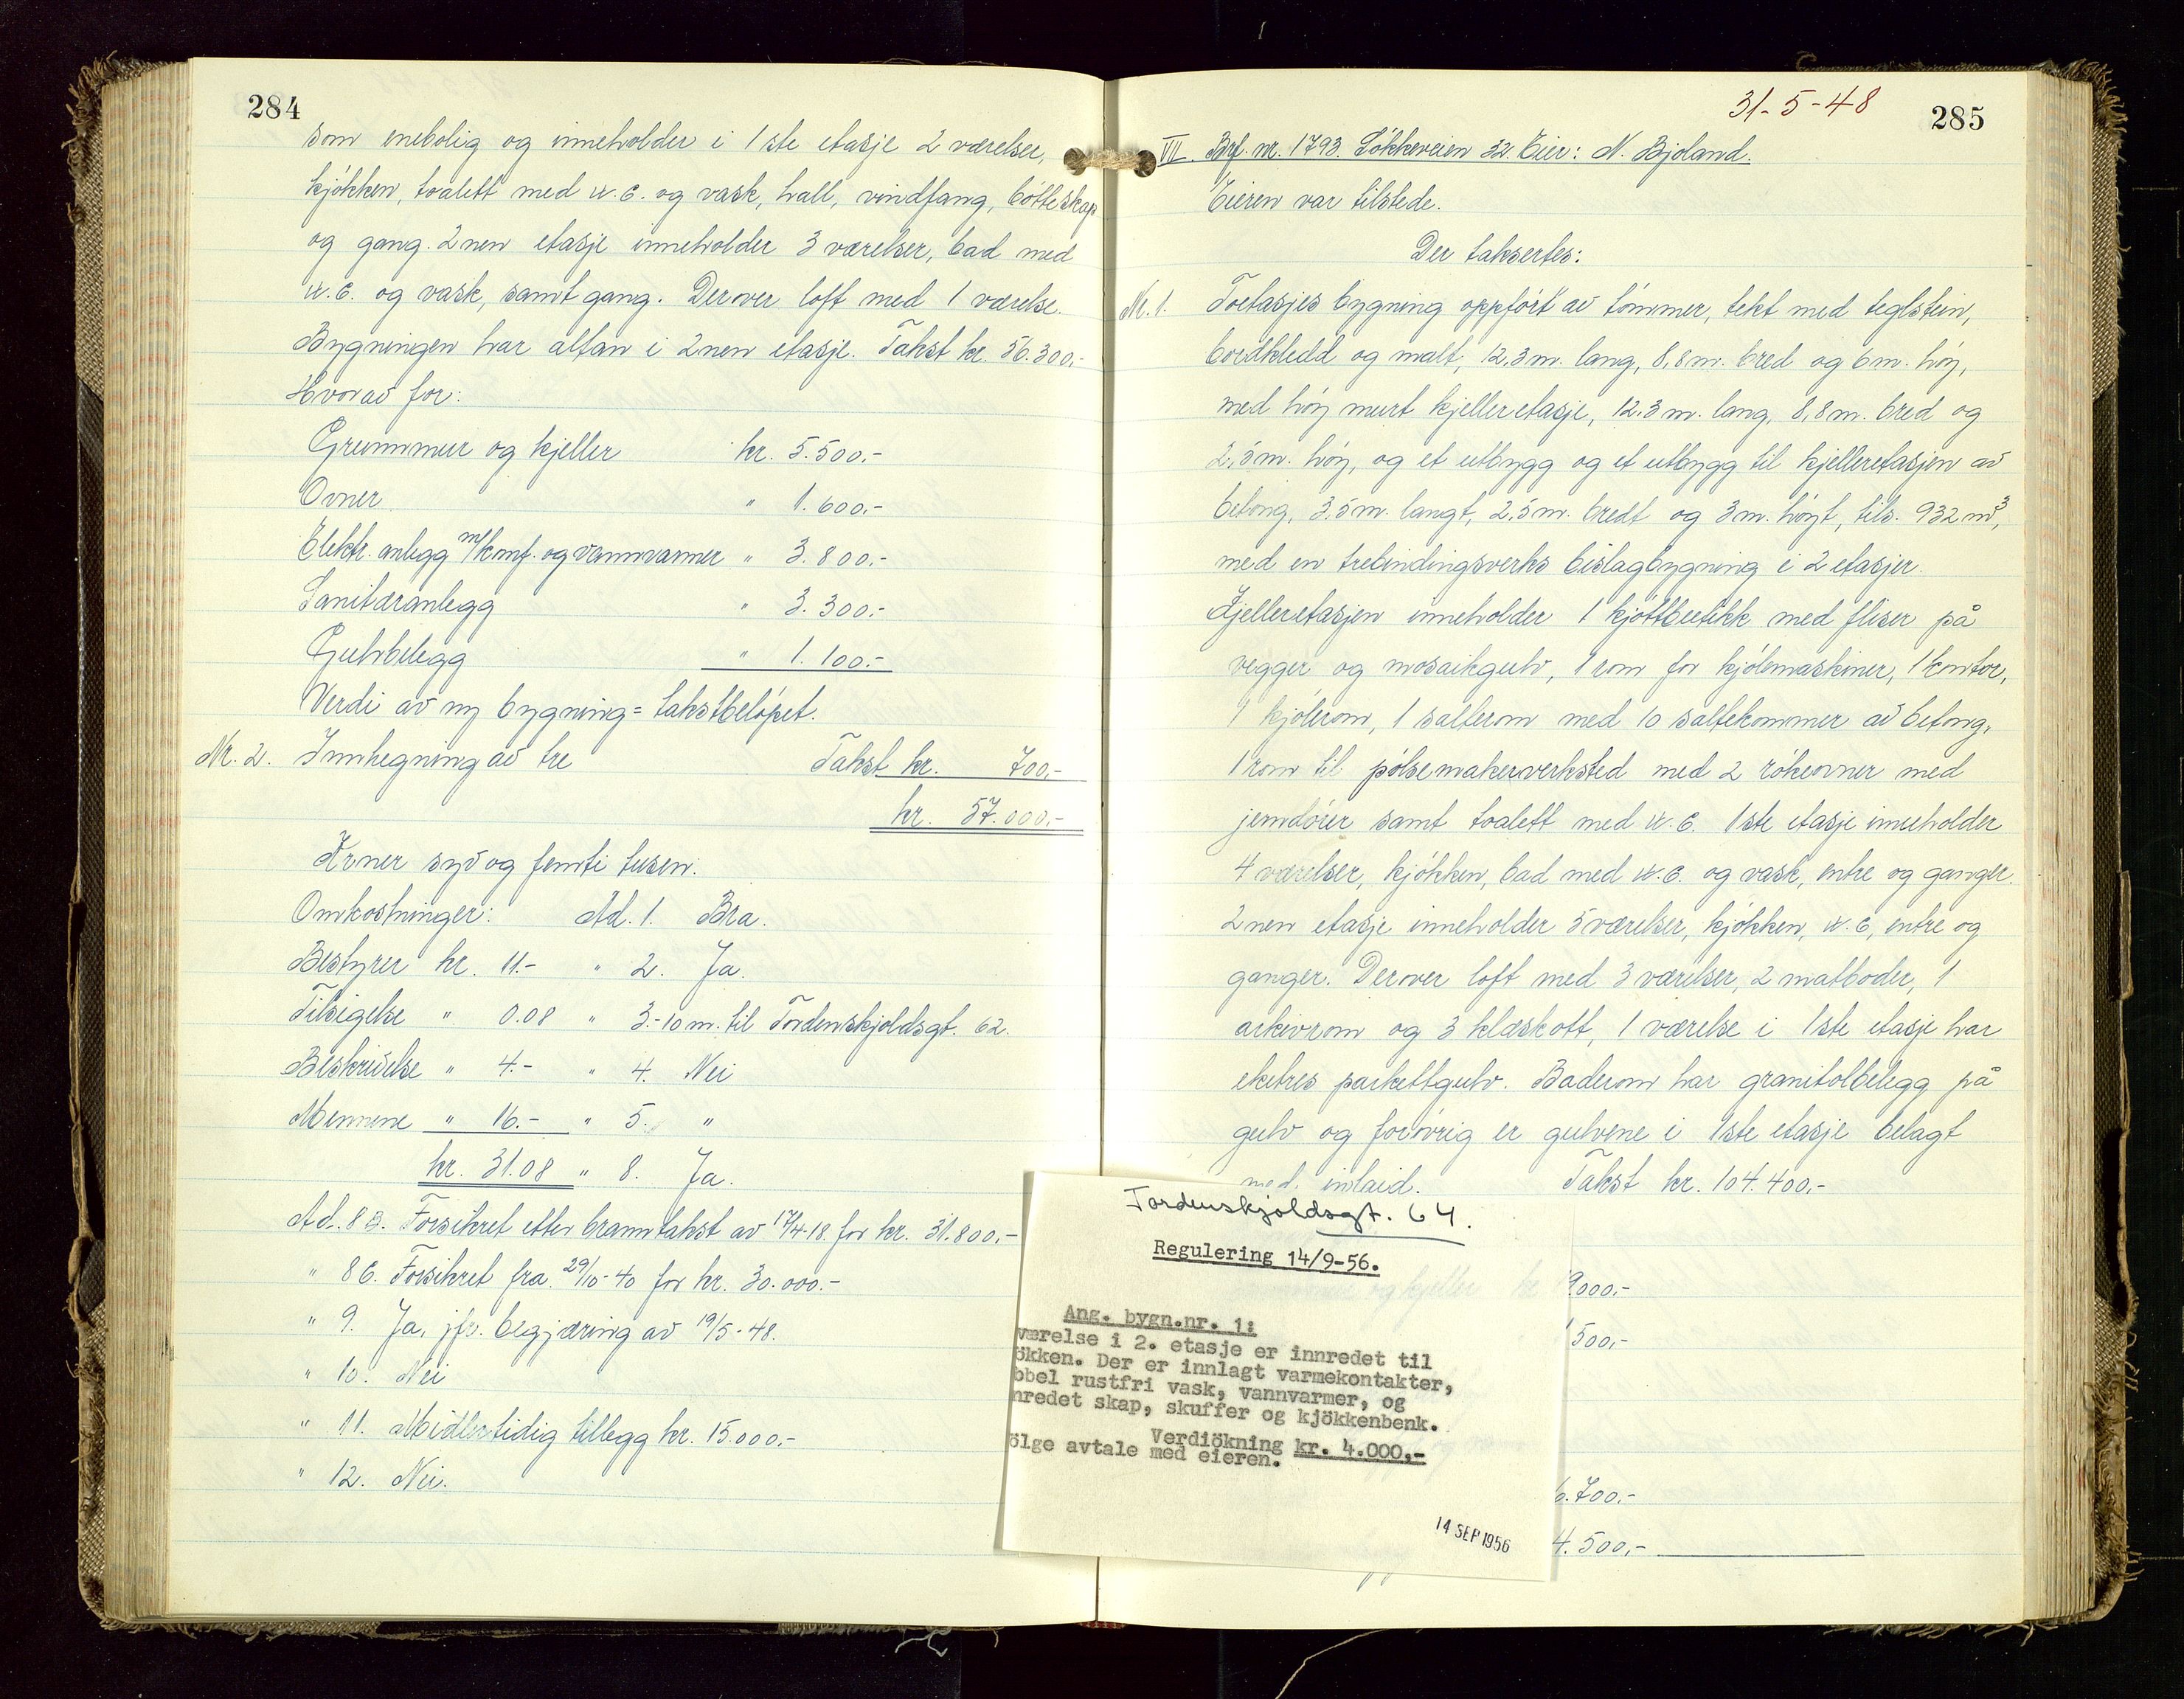 284
som enebolig og inneholder i 1ste etasje 2 værelser,
kjökken, toalett med w.c. og vask, hall, vindfang, bötteskap
og gang. 2nen etasje inneholder 3 værelser, bad med
w.c. og vask, samt gang. Derover loft med 1 værelse.
Bygningen har altan i 2nen etasje. Takst kr. 56.300.-
Hvorav for:
Grunnmur og kjeller kr. 5.500.-
Ovner " 1.600.-
Elektr. anlegg m/komf. og vannvarmer " 3.800.-
Sanitæranlegg " 3.300.-
Gulvbelegg " 1.100.-
Verdi av ny bygning = takstbelöpet.
Nr. 2. Innhegning av tre Takst kr. 700.-
kr. 57.000.-
Kroner syv og femti tusen.
Omkostninger: Ad. 1. Bra.
Bestyrer kr. 11.- " 2. Ja.
Tilsigelse " 0.08 " 3.-10 m. til Tordenskjoldsgt. 62.
Beskrivelse " 4.- " 4. Nei
Mennene " 16.- " 5. "
kr. 31.08 " 8. Ja.
Ad. 8 B. Forsikret etter branntakst av 17/4-18. for kr. 31.800.-
" 8 C. Forsikret fra 29/10-40 for kr. 30.000.-
" 9. Ja, jfr. begjæring av 19/5-48.
" 10. Nei
" 11. Midlertidig tillegg kr. 15.000.-
" 12. Nei.
31-5-48 285
VII. Brf. nr. 1793. Lökkeveien 32. Eier: N. Bjoland.
Eieren var tilstede.
Der taksertes:
Nr. 1. Toetasjes bygning oppfört av tömmer, tekt med teglstein,
bordkledd og malt, 12,3 m. lang, 8,8 m. bred og 6 m. höy,
med höy murt kjelleretasje, 12,3 m. lang, 8,8 m. bred og
2,5 m. höy, og et utbygg og et utbygg til kjelleretasjen av
betong, 3,5 m. langt, 2,5 m. bredt og 3 m. höyt, tils. 932 m³,
med en trebindingsverks bislagbygning i 2 etasjer.
Kjelleretasjen inneholder 1 kjöttbutikk med fliser på
vegger og mosaikgulv, 1 rom for kjölemaskiner, 1 kontor,
1 kjölerom, 1 salterom med 10 saltekommer av betong,
1 rom til pölsemakerverksted med 2 rökeovner med
jerndörer samt toalett med w.c. 1ste etasje inneholder
4 værelser, kjökken, bad med w.c. og vask, entre og ganger.
2nen etasje inneholder 5 værelser, kjökken, w.c, entre og
ganger. Derover loft med 3 værelser, 2 matboder, 1
arkivrom og 3 kleskott, 1 værelse i 1ste etasje har
eketres parkettgulv. Baderom har granitolbelegg på
gulv og forövrig er gulvene i 1ste etasje belagt
med inlaid. Takst kr. 104.400,-
9.000.-
500,-
6.700.-
4.500,-
Tordenskjoldsgt. 64.
Regulering 14/9-56.
Ang. bygn.nr. 1:
værelse i 2. etasje er innredet til
ökken. Der er innlagt varmekontakter,
bbel rustfri vask, vannvarmer, og
nredet skap, skuffer og kjökkenbenk.
Verdiökning kr. 4.000,-
ölge avtale med eieren.
14 SEP 1956